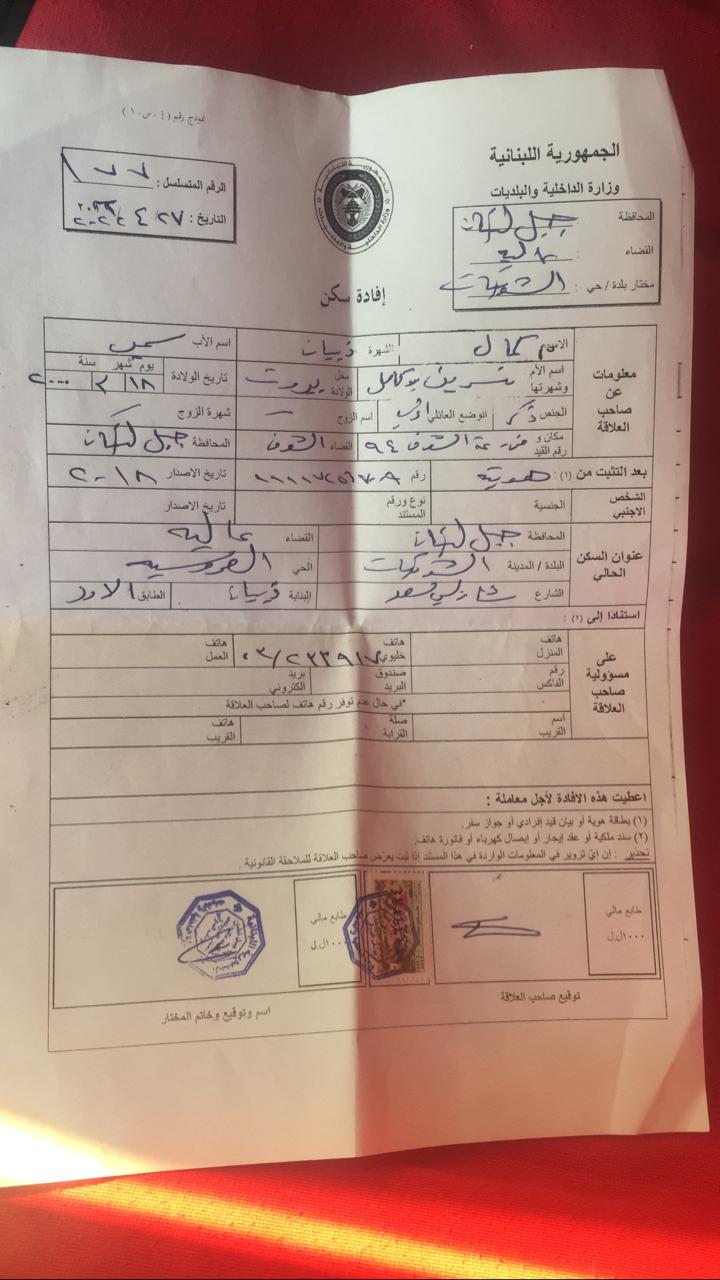 نموذج رقم (٤.ص.١٠)
الجمهورية اللبنانية
وزارة الداخلية والبلديات
المحافظة : جبل لبنان
القضاء : عاليه
مختار بلدة / حي : الشويفات
الرقم المتسلسل :
التاريخ : ٢٧ ٤
إفادة سكن
معلومات عن صاحب العلاقة
الاسم كمال الشهرة ذبيان اسم الأب سمير
اسم الأم وشهرتها نسرين بو كامل محل الولادة بيروت تاريخ الولادة يوم ١٨ شهر ٣ سنة ٢٠٠٠
الجنس ذكر الوضع العائلي اعزب اسم الزوج — شهرة الزوج
مكان و رقم القيد مزرعة الشوف ٩٤ القضاء الشوف المحافظة جبل لبنان
بعد التثبت من (١) : هوية رقم تاريخ الاصدار ٢٠١٨
الشخص الاجنبي الجنسية نوع ورقم المستند تاريخ الاصدار
عنوان السكن الحالي
المحافظة جبل لبنان القضاء عاليه
البلدة / المدينة الشويفات الحي
الشارع البناية ذبيان الطابق الاول
استنادا إلى (٢) :
على مسؤولية صاحب العلاقة
هاتف المنزل هاتف خليوي ٠٣/٢٣٣٩١٧ هاتف العمل
رقم الفاكس صندوق البريد بريد الكتروني
*في حال عدم توفر رقم هاتف لصاحب العلاقة
اسم القريب صلة القرابة هاتف القريب
اعطيت هذه الافادة لأجل معاملة :
(١) بطاقة هوية أو بيان قيد إفرادي أو جواز سفر.
(٢) سند ملكية أو عقد إيجار أو إيصال كهرباء أو فاتورة هاتف.
تحذير : إن إيّ تزوير في المعلومات الواردة في هذا المستند إذا ثبت يعرّض صاحب العلاقة للملاحقة القانونية .
طابع مالي
١٠٠٠ل.ل
طابع مالي
١٠٠٠ل.ل
توقيع صاحب العلاقة
اسم وتوقيع وخاتم المختار